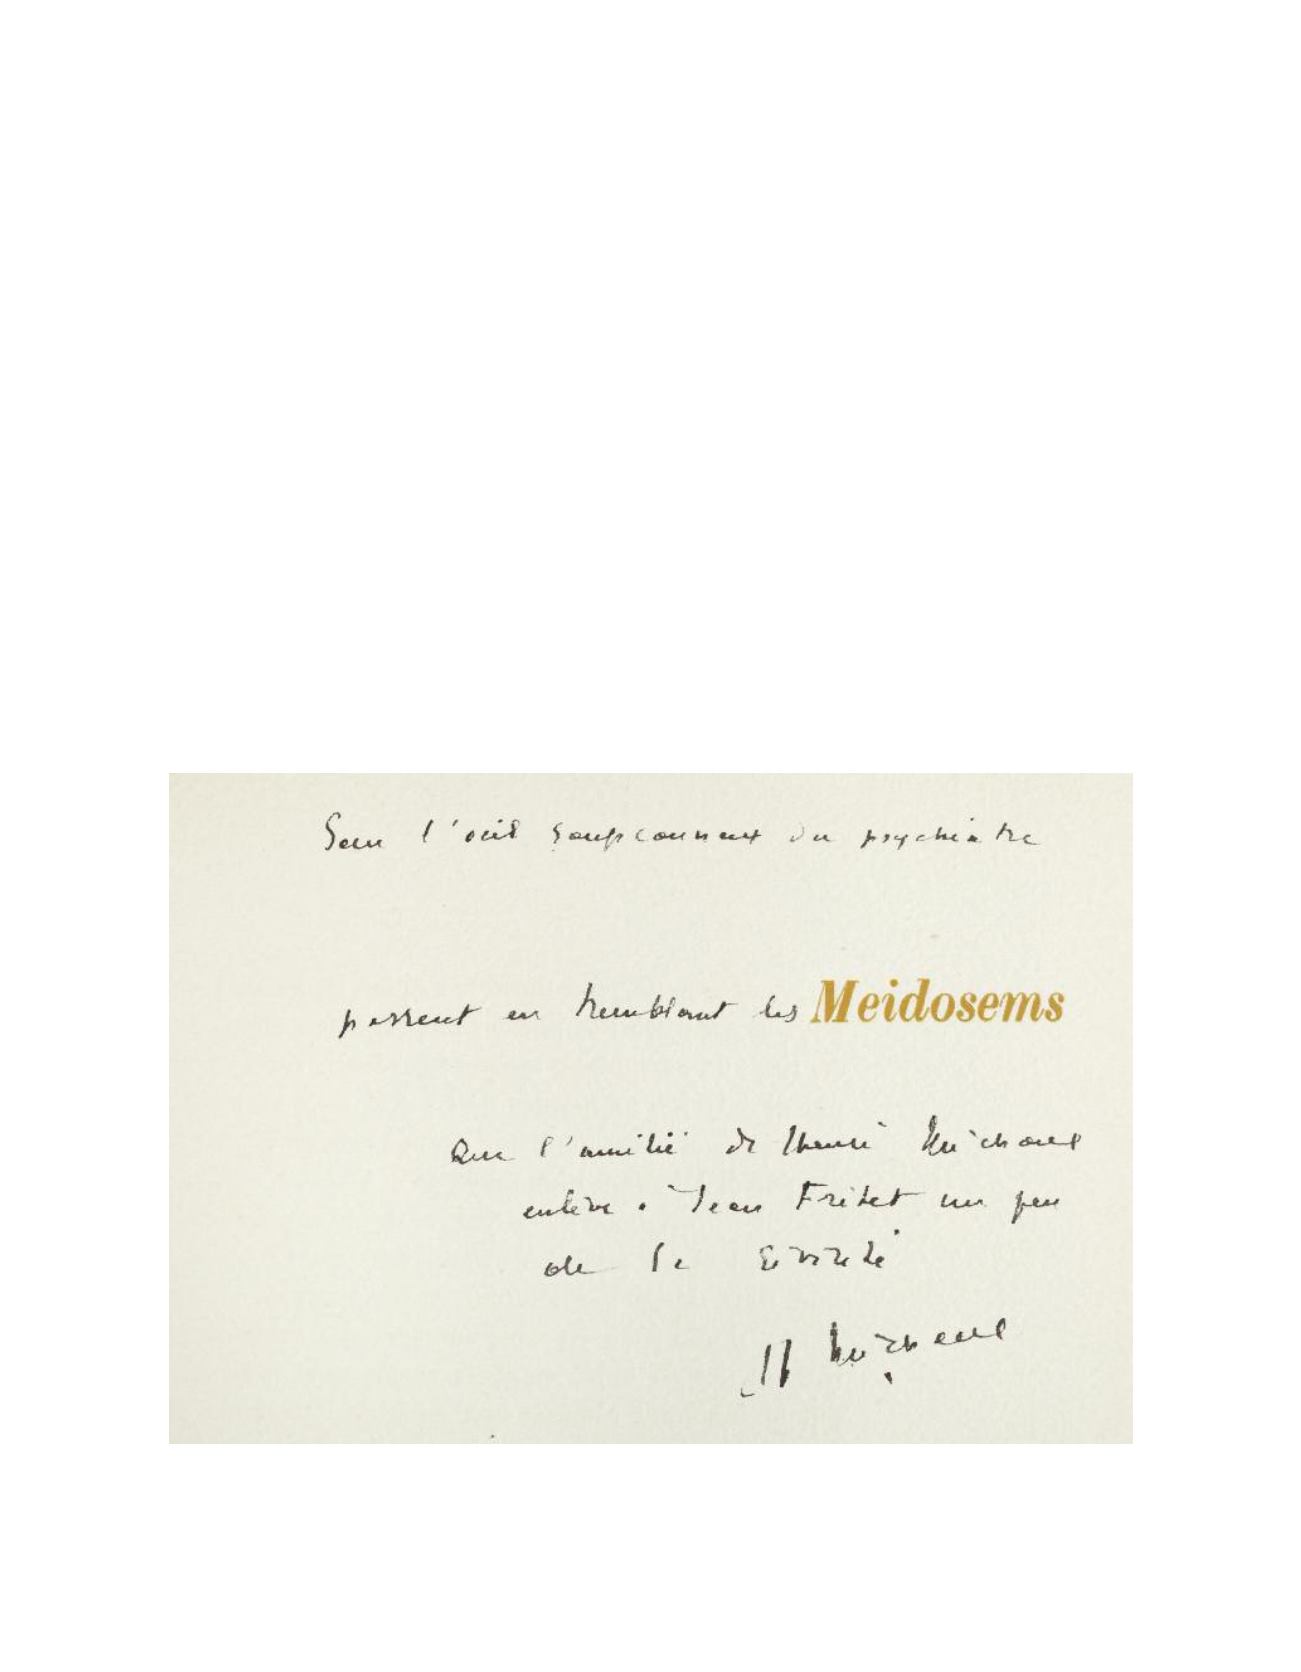 Sous l'œil soupçonneux du psychiatre
passent en tremblant les Meidosems
Que l'amitié de Henri Michaux
enlève à Jean Fretet un peu
de la sévérité
H Michaux